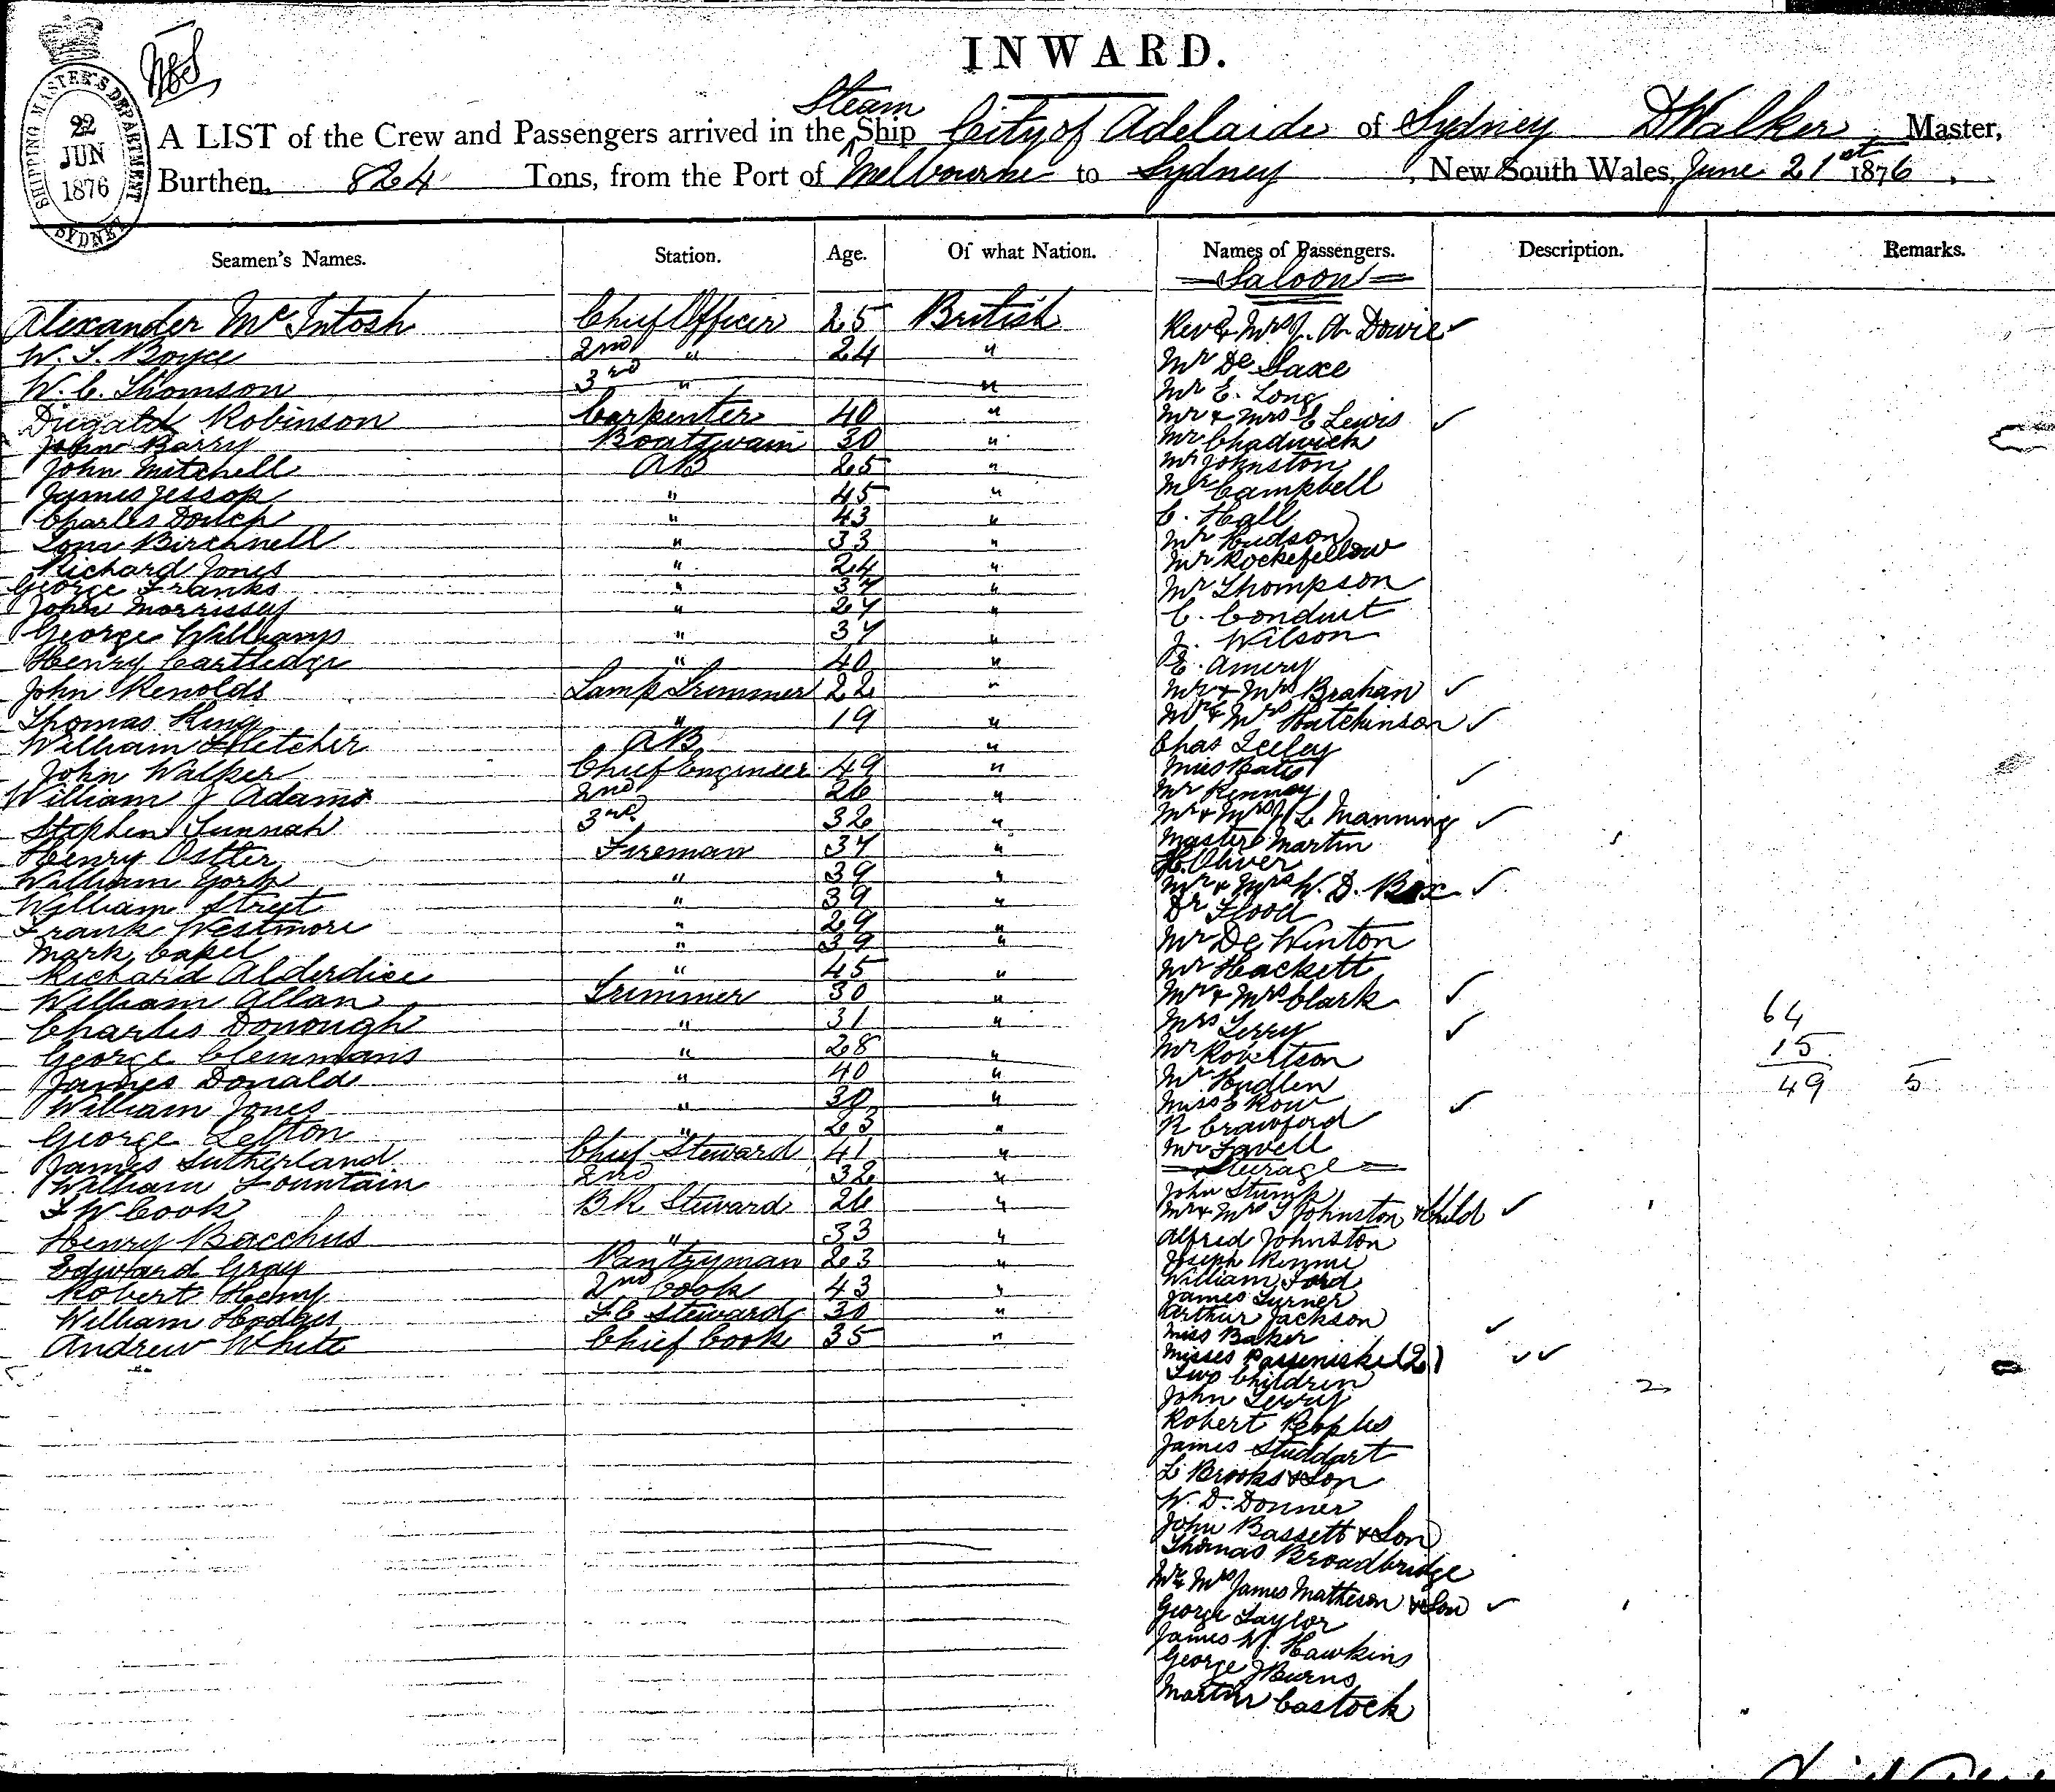 INWARD.
SHIPPING MASTER'S DEPARTMENT
22
JUN
1876
SYDNEY
A LIST of the Crew and Passengers arrived in the Steam Ship City of Adelaide of Sydney D Walker, Master,
Burthen, 824 Tons, from the Port of Melbourne to Sydney, New South Wales, June 21st 1876.
Seamen's Names. Station. Age. Of what Nation. Names of Passengers. Description. Remarks.
Saloon
Alexander McIntosh Chief Officer 25 British Revd & Mrs J. A Dowie ✓
W. S. Boyce 2nd " 24 " Mr De Saxe
W. C. Thomson 3rd " " Mr E. Long
Dugald Robinson Carpenter 40 " Mr & Mrs E Lewis ✓
John Barry Boatswain 30 " Mr Chadwick
John Mitchell AB 25 " Mr Johnston
James Jessop " 45 " Mr Campbell
Charles Doutch " 43 " C. Hall
Tom Birchnell " 33 " Mr Hudson
Richard Jones " 24 " Mr Rockefellow
George Franks " 37 " Mr Thompson
John Morrissey " 27 " C. Conduit
George Williams " 37 " J. Wilson
Henry Cartledge " 40 " E. Amery
John Renolds Lamp Trimmer 22 " Mr & Mrs Brahan ✓
Thomas King " 19 " Mr & Mrs Hutchinson ✓
William Fletcher AB " Chas Seeley
John Walker Chief Engineer 49 " Miss Bates ✓
William J Adams 2nd 26 " Mr Kennay
Stephen Tunnah 3rd 32 " Mr & Mrs J L Manning ✓
Henry Ostler Fireman 37 " Master Martin
William York " 39 " H. Oliver
William Street " 39 " Mr & Mrs W. D. Box ✓
Frank Westmore " 29 " Dr Flood
Mark Capel " 39 " Mr De Winton
Richard Alderdice " 45 " Mr Hackett
William Allan Trimmer 30 " Mr & Mrs Clark ✓
Charles Donough " 31 " Mrs Terry ✓ 64
George Clemmans " 28 " Mr Robertson 15
James Donald " 40 " Mr Hudlen 49 5
William Jones " 30 " Miss E Row ✓
George Lelton " 23 " R Crawford
James Sutherland Chief Steward 41 " Mr Favell
William Fountain 2nd 32 " Steerage
F W Cook BR Steward 26 " John Stump
Henry Bacchus " 33 " Mr & Mrs T Johnston & Child ✓ 1
Edward Gray Pantryman 23 " Alfred Johnston
Robert Henry 2nd Cook 43 " Joseph Rennie
William Hodges F C Steward 30 " William Ford
Andrew White Chief Cook 35 " James Turner
Arthur Jackson
Miss Baker ✓
Misses (2) ✓✓
Two Children 2
John Terry
Robert Peoples
James Studdart
L Brooks & Son
W. D. Donner
John Bassett & Son
Thomas Broadbridge
Mr & Mrs James Matheson & Son ✓ 1
George Taylor
James W. Hawkins
George J Burns
Martin Castock